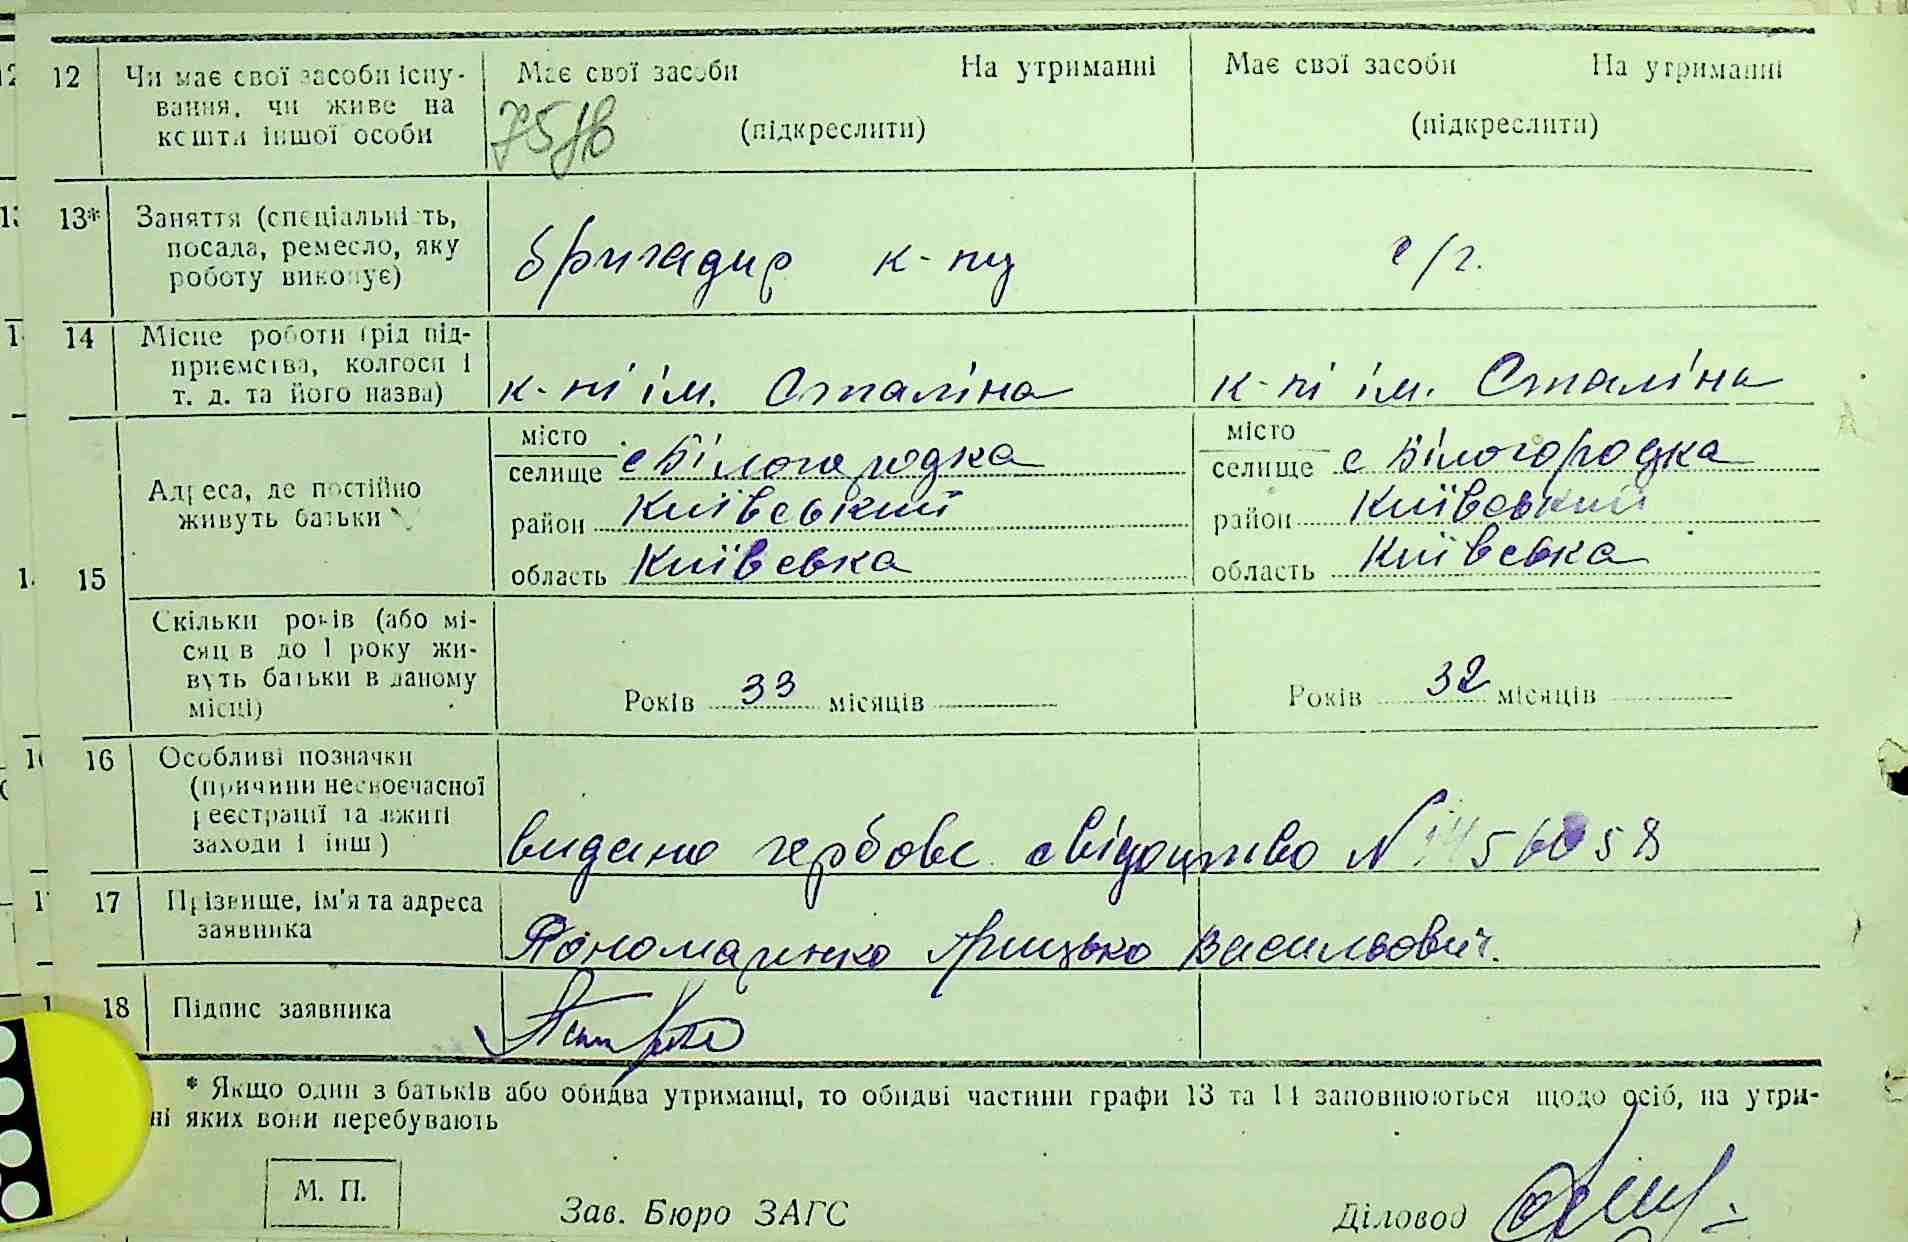 12 Чи має свої засоби існу- Має свої засоби На утриманні Має свої засоби На утриманні
вання, чи живе на (підкреслити) (підкреслити)
кошти іншої особи
13* Заняття (спеціальність,
посада, ремесло, яку бригадир к-пу с/г.
роботу виконує)
14 Місце роботи (рід під-
приємства, колгосп і
т. д. та його назва) к-пі ім. Сталіна к-пі ім. Сталіна
15 Адреса, де постійно
живуть батьки
місто місто
селище с Білогородка селище с Білогородка
район Київський район Київський
область Київська область Київська
Скільки років (або мі-
сяців до 1 року жи-
вуть батьки в даному
місці) Років 33 місяців Років 32 місяців
16 Особливі позначки
(причини несвоєчасної
реєстрації та вжиті
заходи і інш) видано гербове свідоцтво N
17 Прізвище, ім'я та адреса
заявника Пономаренко Грицько Васильович.
18 Підпис заявника
* Якщо один з батьків або обидва утриманці, то обидві частини графи 13 та 14 заповнюються щодо осіб, на утри-
ні яких вони перебувають
М. П.
Зав. Бюро ЗАГС Діловод